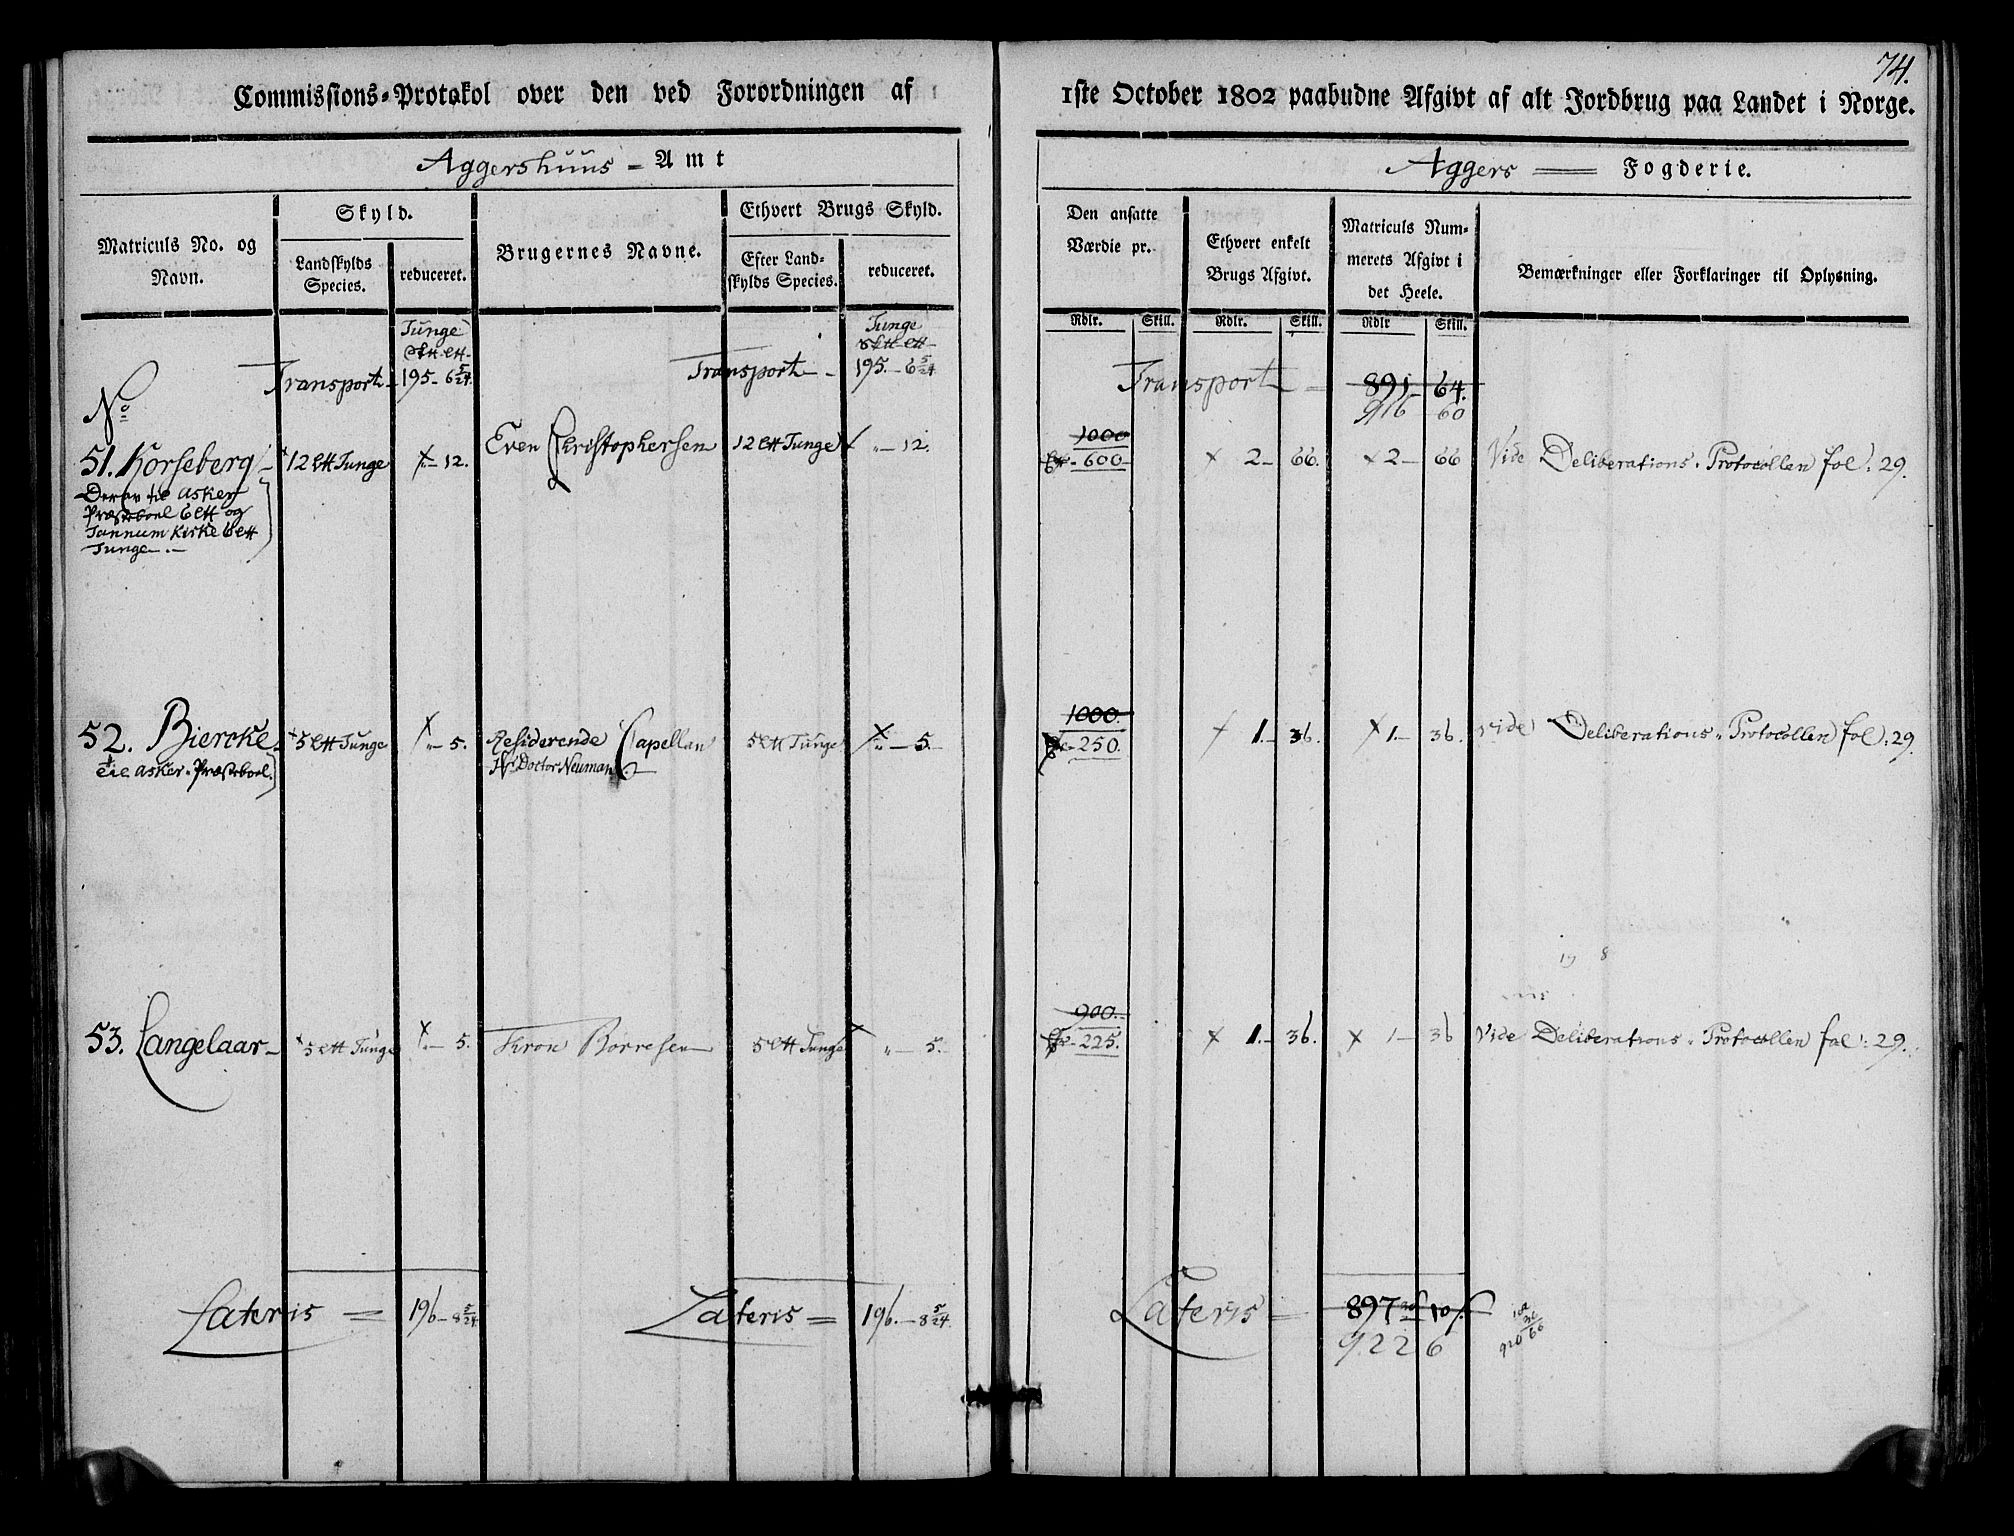 74.
Commissions-Protokol over den ved Forordningen af 1ste October 1802 paabudne Afgivt af alt Jordbrug paa Landet i Norge.
Aggershuus - Amt
Aggers Fogderie.
Matriculs No. og Navn.
Skyld.
Landskylds Species.
reduceret.
Brugernes Navne.
Ethvert Brugs Skyld.
Efter Landskylds Species.
reduceret.
Den ansatte Værdie pr.
Ethvert enkelt Brugs Afgivt.
Matriculs Nummerets Afgivt i det Heele.
Bemærkninger eller Forklaringer til Oplysning.
Rdlr. Skill. Rdlr. Skill. Rdlr Skill.
Tunge Tunge
Transport - 195 - 6 5/24 Transport - 195. - 6 5/24 Transport = 891 - 64.
916 60
No
1000
51. Korseberg - 12 ltt Tunge " - 12. Even Christophersen 12 ltt Tunge " - 12. 600 2 - 66. 2 - 66 Vide Deliberations-Protocollen fol: 29.
Derav til Asker
Præsteboel 6 ltt og
Tannum Kirke 6 ltt
Tunge -.-
1000.
52. Biercke 5 ltt Tunge " - 5. Residerende Capellan 5 ltt Tunge " - 5. 250. 1. - 36. 1. - 36. vide Deliberations-Protocollen fol: 29.
til Asker-Præsteboel. Hr Doctor Neuman
900.
53. Langelaar - 5 ltt Tunge " - 5. Thron Børresen 5 ltt Tunge " - 5. 225. 1. - 36. 1 - 36 Vide Deliberations-Protocollen fol: 29.
Lateris = 196 - 8 5/24 Lateris = 196. - 8 5/24 Lateris = 897 10
922 6
920 66